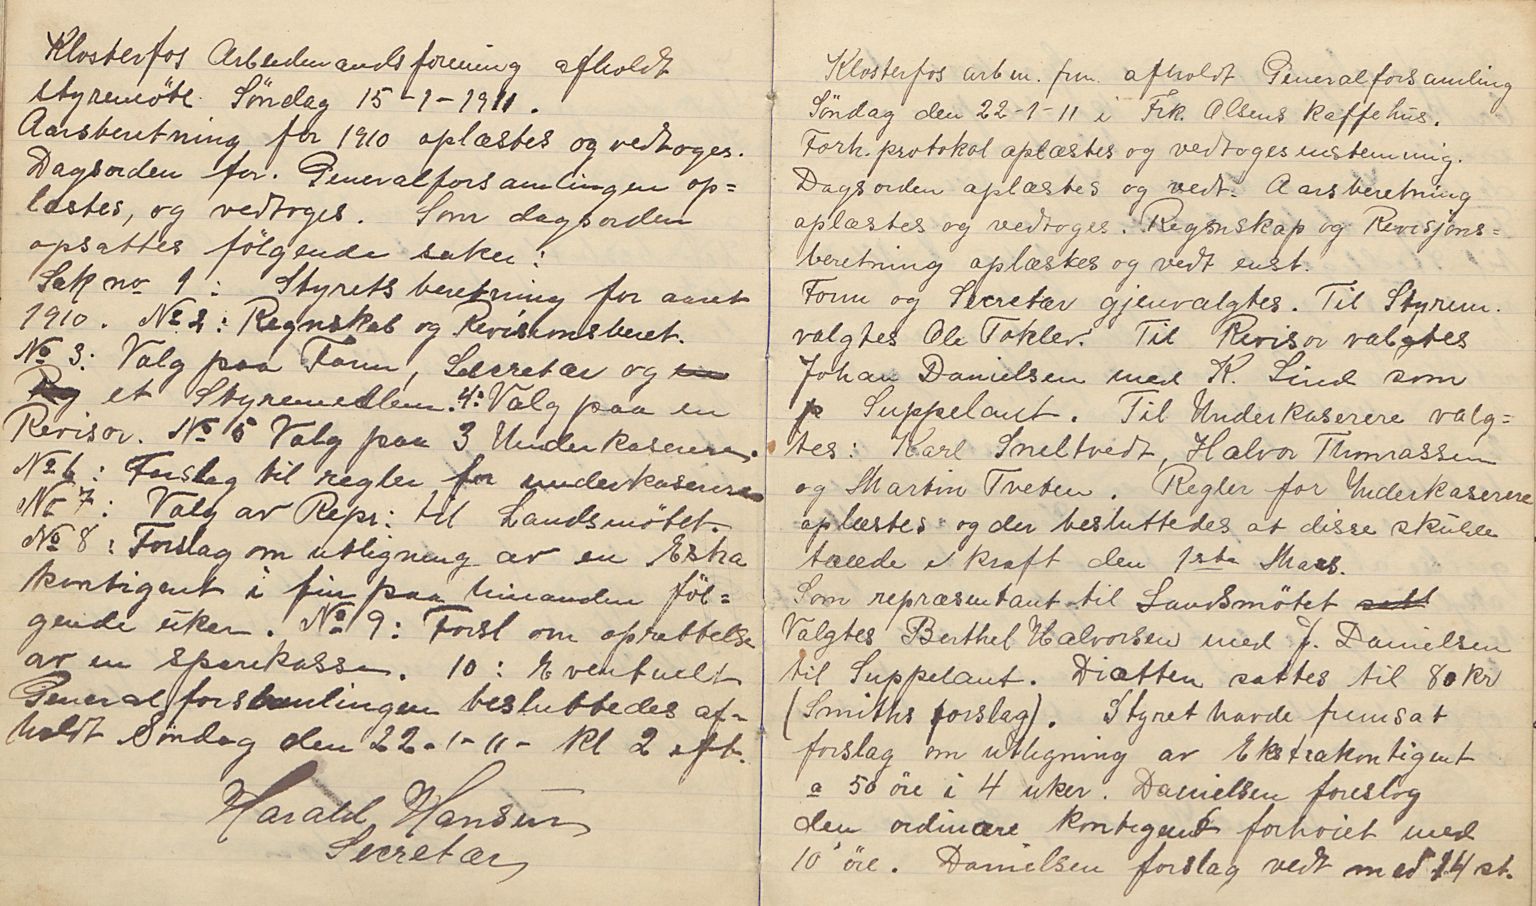 Klosterfos Arbeidemandsforening afholdt
styremöte Söndag 15-1-1911.
Aarsberetning for 1910 oplæstes og vedtoges.
Dagsorden for Generalforsamlingen op=
læstes, og vedtoges. Som dagsorden
opsattes fölgende saker:
Sak no 1: Styrets beretning for aaret
1910. No 2: Regnskab og Revisionsberet.
No 3: Valg paa Form, Secretær og en
Rev et Styremedlem. 4: Valg paa en
Revisor. No 5 Valg paa 3 Underkaserere.
No 6: Forslag til regler for underkaserere
No 7: Valg av Repr: til Landsmötet.
No 8: Forslag om utligning av en Extra
kontigent i fire paa hinanden föl=
gende uker. No 9: Forsl om oprettelse
av en sparekasse. 10: Eventuelt
Generalforsamlingen besluttedes af=
holdt Söndag den 22-1-11- kl 2 eft.
Harald Hansen
Secretær
Klosterfos arb m. frn. afholdt Generalforsamling
Söndag den 22-1-11 i Frk. Olsens kaffehus.
Forh. protokol oplæstes og vedtoges enstemmig.
Dagsorden oplæstes og vedt. Aarsberetning
oplæstes og vedtoges. Regnskap og Revisjons=
beretning oplæstes og vedt enst.
Form og Secretær gjenvalgtes. Til Styrem.
valgtes Ole Takler. Til Revisor valgtes
Johan Danielsen med K. Lind som
Suppelant. Til Underkaserere valg=
tes: Karl Sneltvedt, Halvor Thomassen
og Martin Tveten. Regler for Underkaserere
oplæstes og der besluttedes at disse skulle
træde i kraft den 1ste Mars.
Som repræsentant til Landsmötet
Valgtes Berthel Halvorsen med J. Danielsen
til Suppelant. Diætten sattes til 80 kr
(Smiths forslag). Styret havde fremsat
forslag om utligning av Ekstrakontigent
a 50 öre i 4 uker. Danielsen foreslog
den ordinære kontigent forhöiet med
10 öre. Danielsen forslag vedt med 14 st.